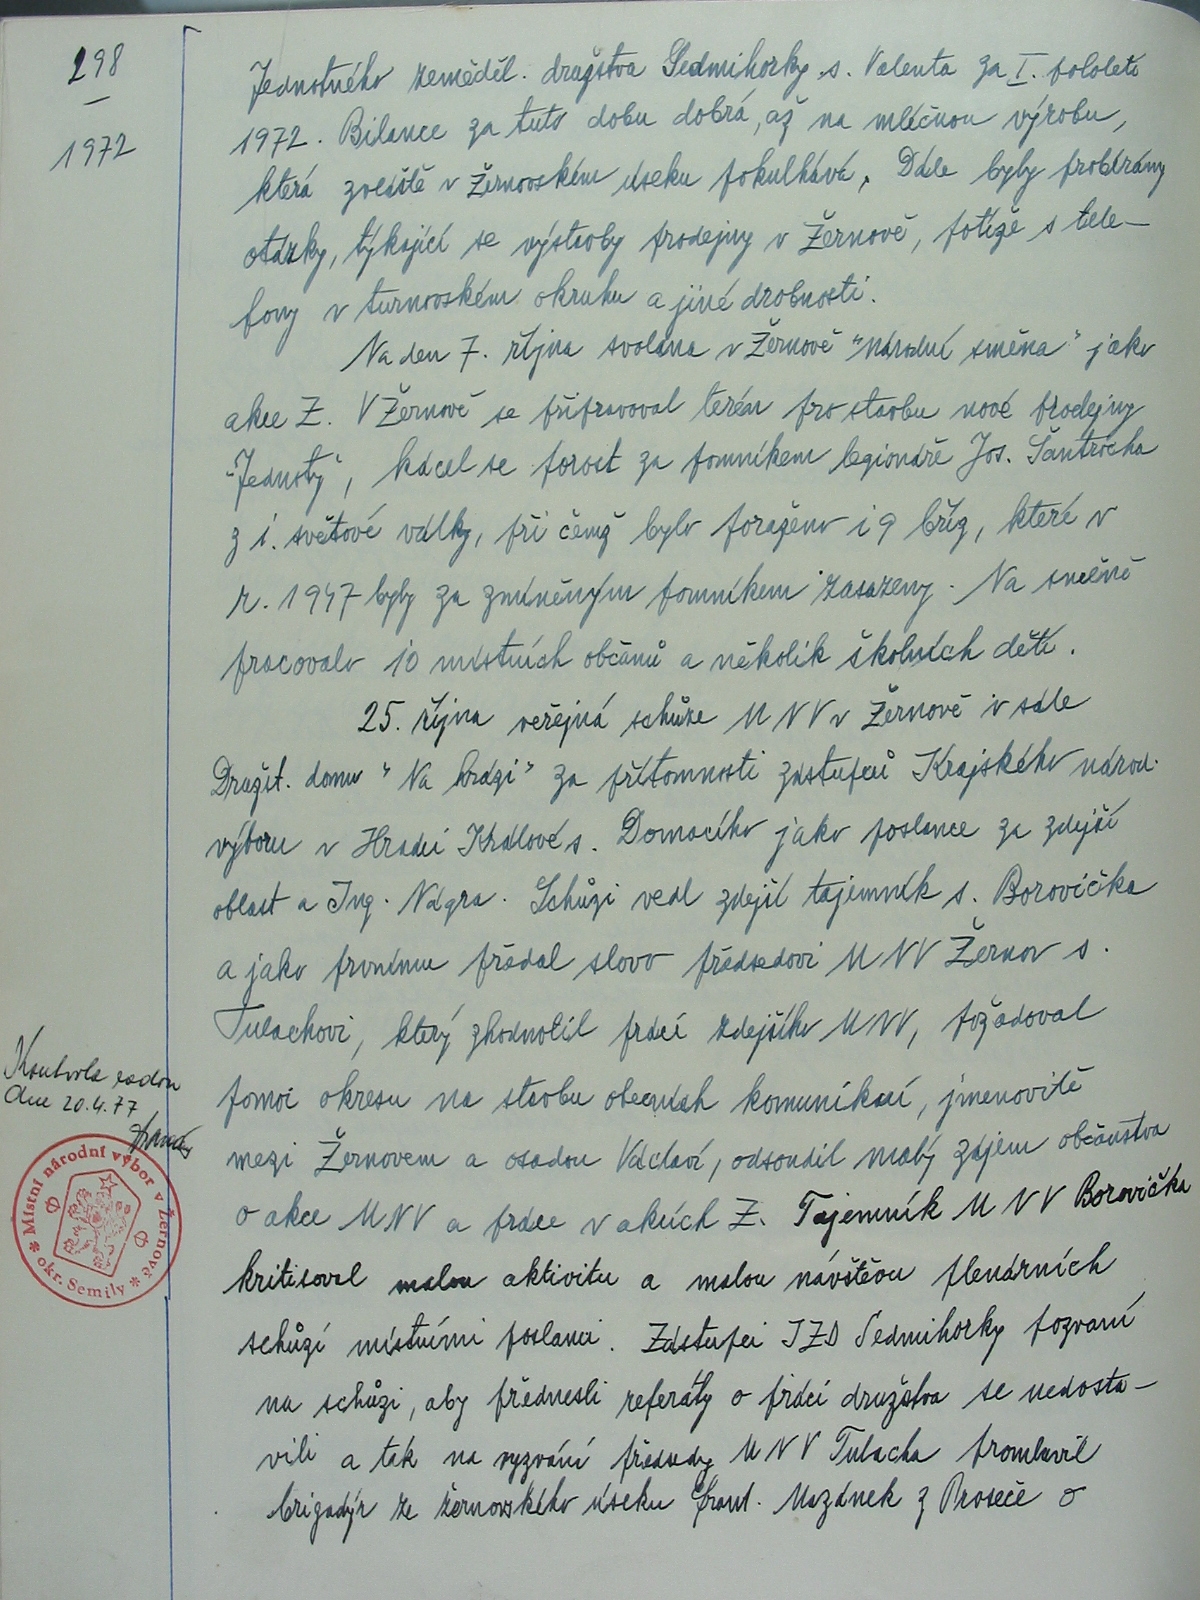 298
1972
Jednotného zeměděl. družstva Sedmihorky s. Valenta za I. pololetí
1972. Bilance za tuto dobu dobrá, až na mléčnou výrobu,
která zvláště v Žernovském úseku pokulhává. Dále byly probírány
otázky, týkající se výstavby prodejny v Žernově, potíže s tele-
fony v turnovském okruhu a jiné drobnosti.
Na den 7. října svolána v Žernově "národní směna" jako
akce Z. V Žernově se připravoval terén pro stavbu nové prodejny
"Jednoty", kácel se porost za pomníkem legionáře Jos. Šantrocha
z I. světové války, při čemž bylo poraženo i 9 bříz, které v
r. 1947 byly za zmíněným pomníkem zasazeny. Na směně
pracovalo 10 místních občanů a několik školních dětí.
25. října veřejná schůze MNV v Žernově v sále
Družst. domu "Na hrázi" za přítomnosti zástupců Krajského národ.
výboru v Hradci Králové s. Domacího jako poslance za zdejší
oblast a Ing. Vágra. Schůzi vedl zdejší tajemník s. Borovička
a jako prvnímu předal slovo předsedovi MNV Žernov s.
Tulachovi, který zhodnotil práci zdejšího MNV, požadoval
pomoc okresu na stavbu obecních komunikací, jmenovitě
mezi Žernovem a osadou Václaví, odsoudil malý zájem občanstva
o akce MNV a práce v akcích Z. Tajemník MNV Borovička
kritisoval malou aktivitu a malou návštěvu plenárních
schůzí místními poslanci. Zástupci JZD Sedmihorky pozvaní
na schůzi, aby přednesli referáty o práci družstva se nedosta-
vili a tak na vyzvání předsedy MNV Tulacha promluvil
brigadýr ze žernovského úseku Frant. Mazánek z Proseče o
Kontrola radou
dne 20.4.77
Místní národní výbor v Žernově
okr. Semily